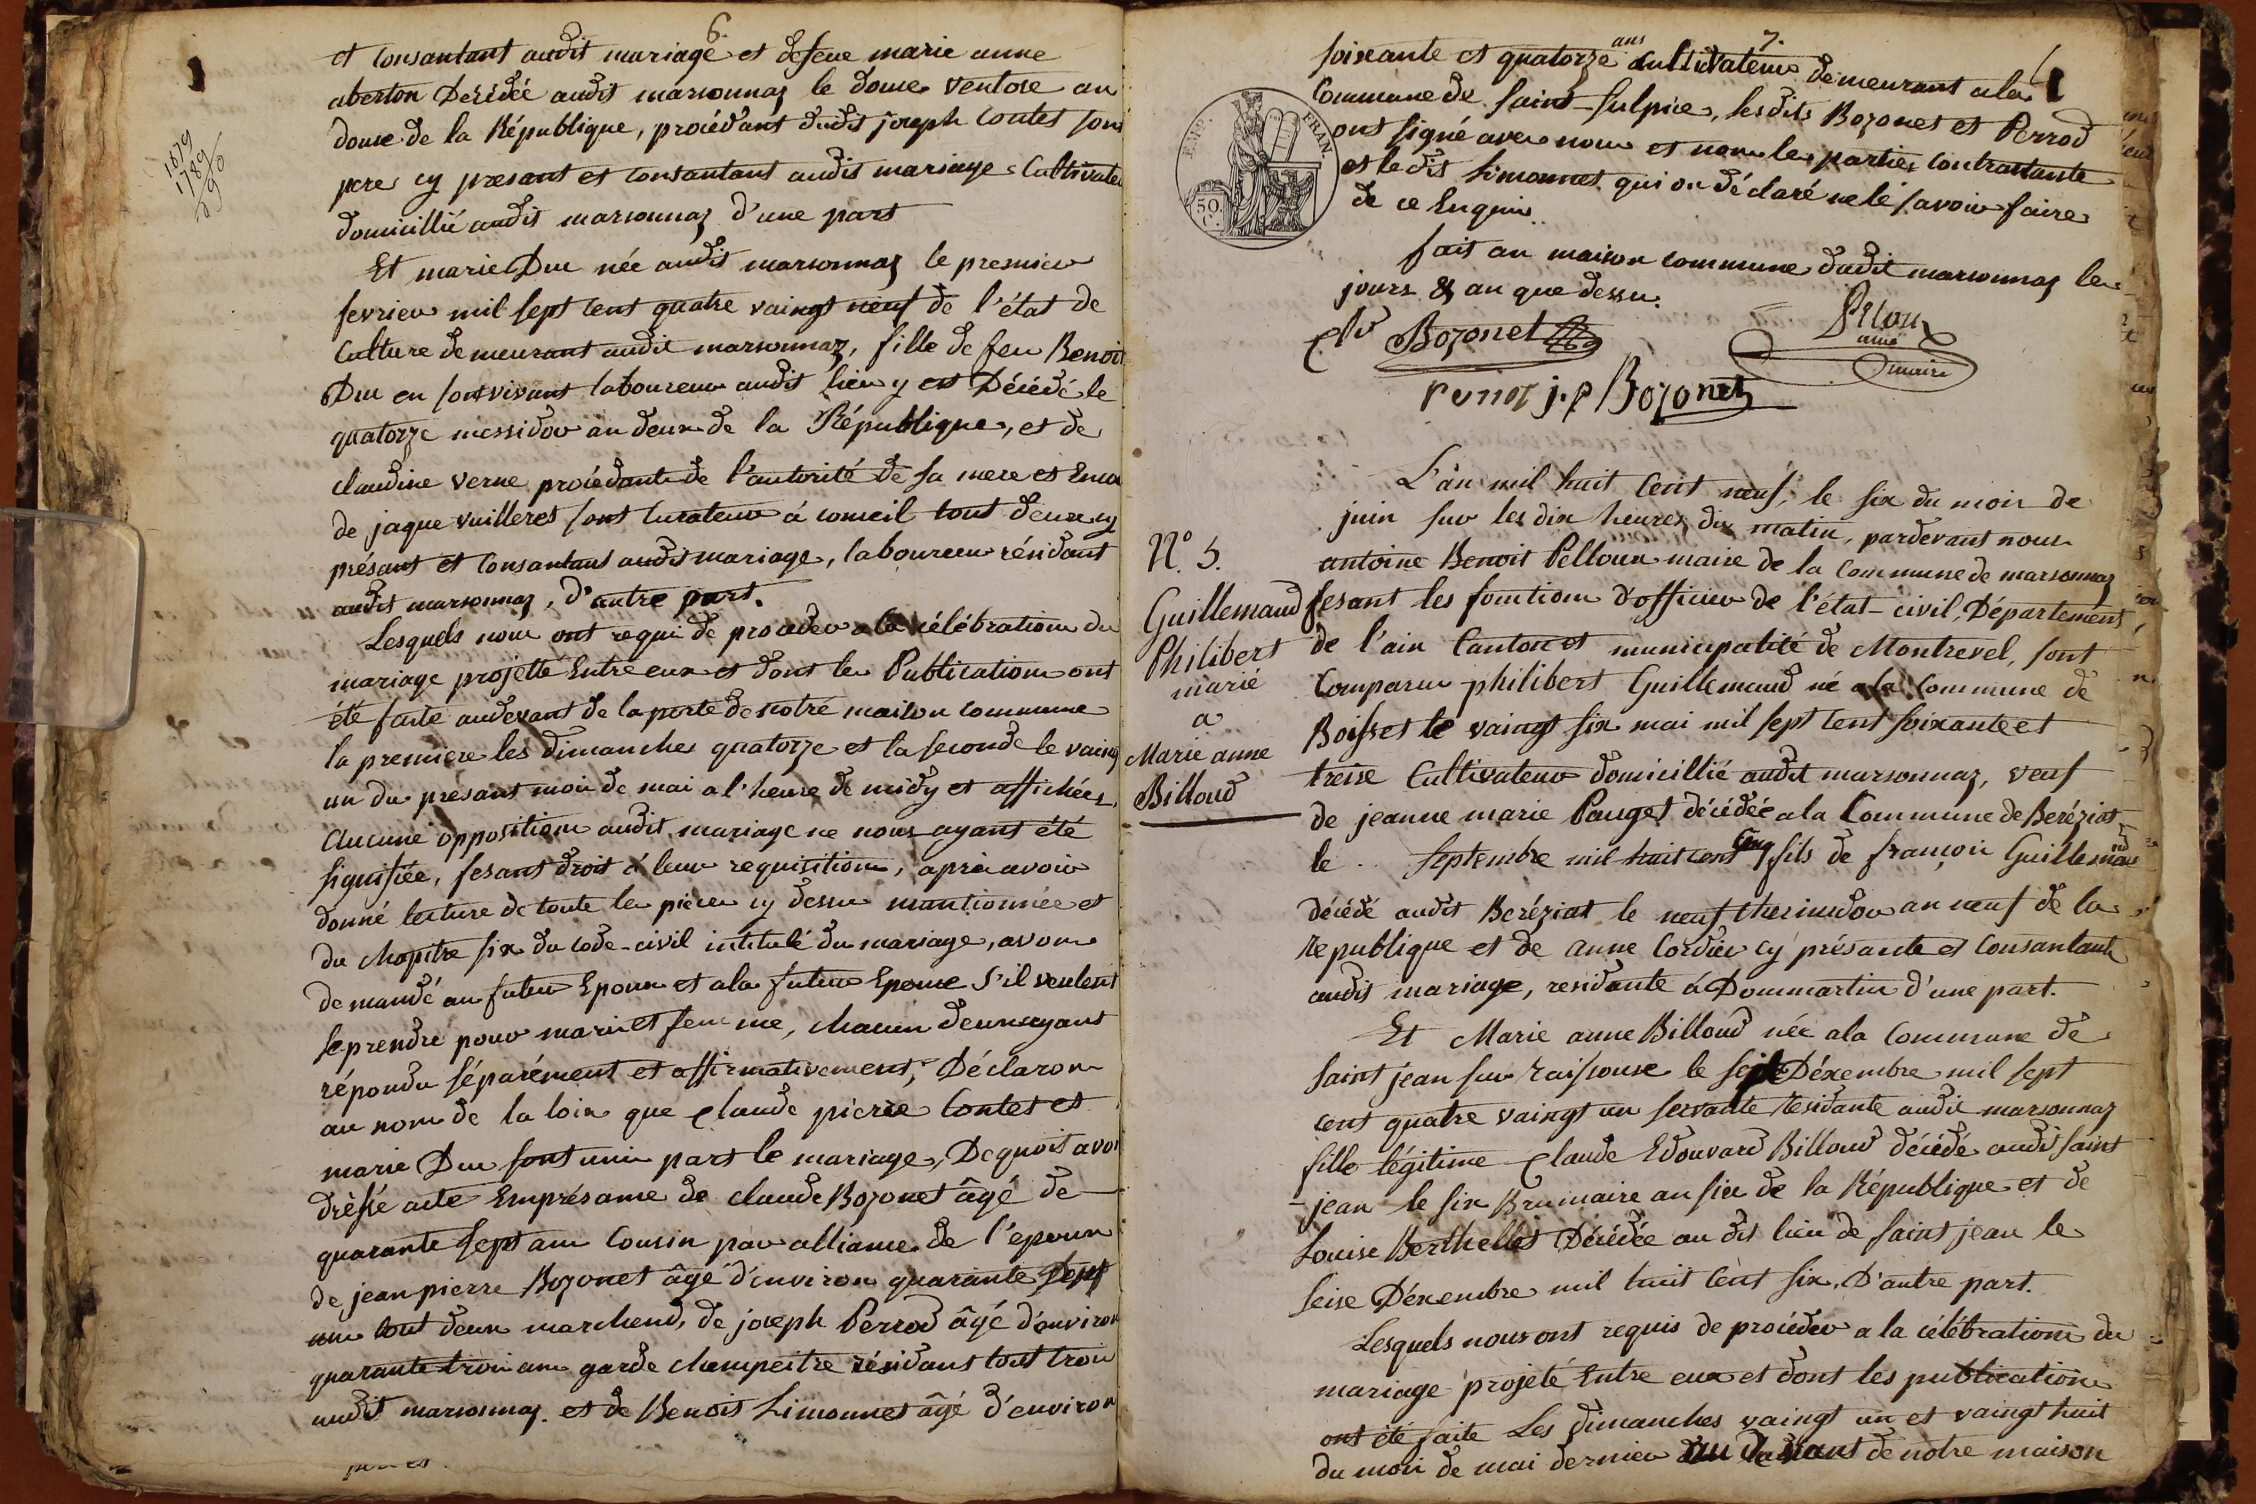 6.
et consantant audit mariage et defeue marie anne
aberton Decédée audit marsonnaz le douse ventose an
douse de la République, procédant dudit joseph Contet sont
pere cy presant et consantant audit mariage Cultivateu
domicillié audit marsonnaz d'une part
Et marie Duc née audit marsonnaz le premier
fevrier mil sept cent quatre vaingt neuf de l'état de
Culture demeurant audit marsonnaz, fille de feu Benoit
Duc en sont vivant laboureur audit lieu y est Décédé le
quatorze messidor an deux de la République, et de
claudine verne procédante de l'autorité de sa mere et
de jaque vuilleret sont Curateur á conseil tout deux cy
présant et consantant audit mariage, laboureur résidant
audit marsonnaz, d'autre part.
Lesquels nous ont requi de proceder a la célébration du
mariage projetté Entre eux et dont les Publication ont
été faite audevant de la porte de notre maison commune
la premiere les dimanche quatorze et la seconde le vaingt
un du presant moi de mai a l'heure de midy et affichées,
Aucune opposition audit mariage ne nous ayant été
signifiée, fesant droit á leur requisition, aprés avoir
donné lecture de toute les pièces cy dessu mantionnée et
du chapitre six du code-civil intitulé du mariage, avons
demandé au futur Epoux et a la future Epouse s'il veulent
se prendre pour mari et femme, chacun deux ayant
répondu séparément et affirmativement, Déclarons
au nom de la loix que claude pierre Contet et
marie Duc sont unis part le mariage, Dequoit avon
dréssé acte Emprésance de claude Bozonet âgé de
quarante sept ans Cousin par alliance de l'epoux
de jean pierre Bozonet âgé d'environ quarante sept
ans tout deux marchend, de joseph Perrod âgé d'environ
quarante trois ans garde champetre résidant tout trois
audit marsonnaz et de Benoit Limonnet âgé d'environ
1879
1789
090
7.
soixante et quatorze ans cultivateur demeurant a la
Commune de saint-sulpice, lesdits Bozonet et Perrod
ont signé avec nous et non les parties contractante
et le dit Limonnet qui on déclaré ne lé savoir faire
de ce Enquis.
fait au maison commune dudit marsonnaz les
jours & an que dessu.
EMP. FRAN.
50 C.
Cld Bozonet
Peloux
maire
perrot j.p Bozonet
L'an mil huit cent neuf, le six du mois de
juin sur les dix heures du matin, pardevant nous
antoine Benoit Pelloux maire de la Commune de marsonnaz
fesant les fonctions d'officier de l'état-civil, Département
de l'ain Canton et municipalité de Montrevel, sont
Comparu philibert Guillemaud né a la Commune de
Boisset le vaingt six mai mil sept cent soixante et
tresse Cultivateur domicillié audit marsonnaz, veuf
de jeanne marie Pauget décédée a la Commune de Beréziat
le septembre mil huit cent cinq fils de françois Guillemaud
décédé audit Beréziat le neuf thermidor an neuf de la
republique et de anne Cordier cy présante et consantante
audit mariage, residante á Dommartin d'une part.
Et Marie anne Billoud née a la Commune de
saint jean sur raissouse le sept Déxembre mil sept
cent quatre vaingt un servante résidante audit marsonnaz
fille légitime claude Edouvard Billoud décédé audit saint
-jean le six Brumaire an six de la République et de
Louise Berthellet Décédée au dit lieu de saint jean le
seise Déxembre mil huit cent six, D'autre part.
Lesquels nous ont requis de procéder a la célébration du
mariage projeté Entre eux et dont les publication
ont été faite Les Dimanches vaingt un et vaingt huit
du moi de mai dernier au devant de notre maison
N.° 5.
Guillemaud
Philibert
marié
a
Marie anne
Billoud